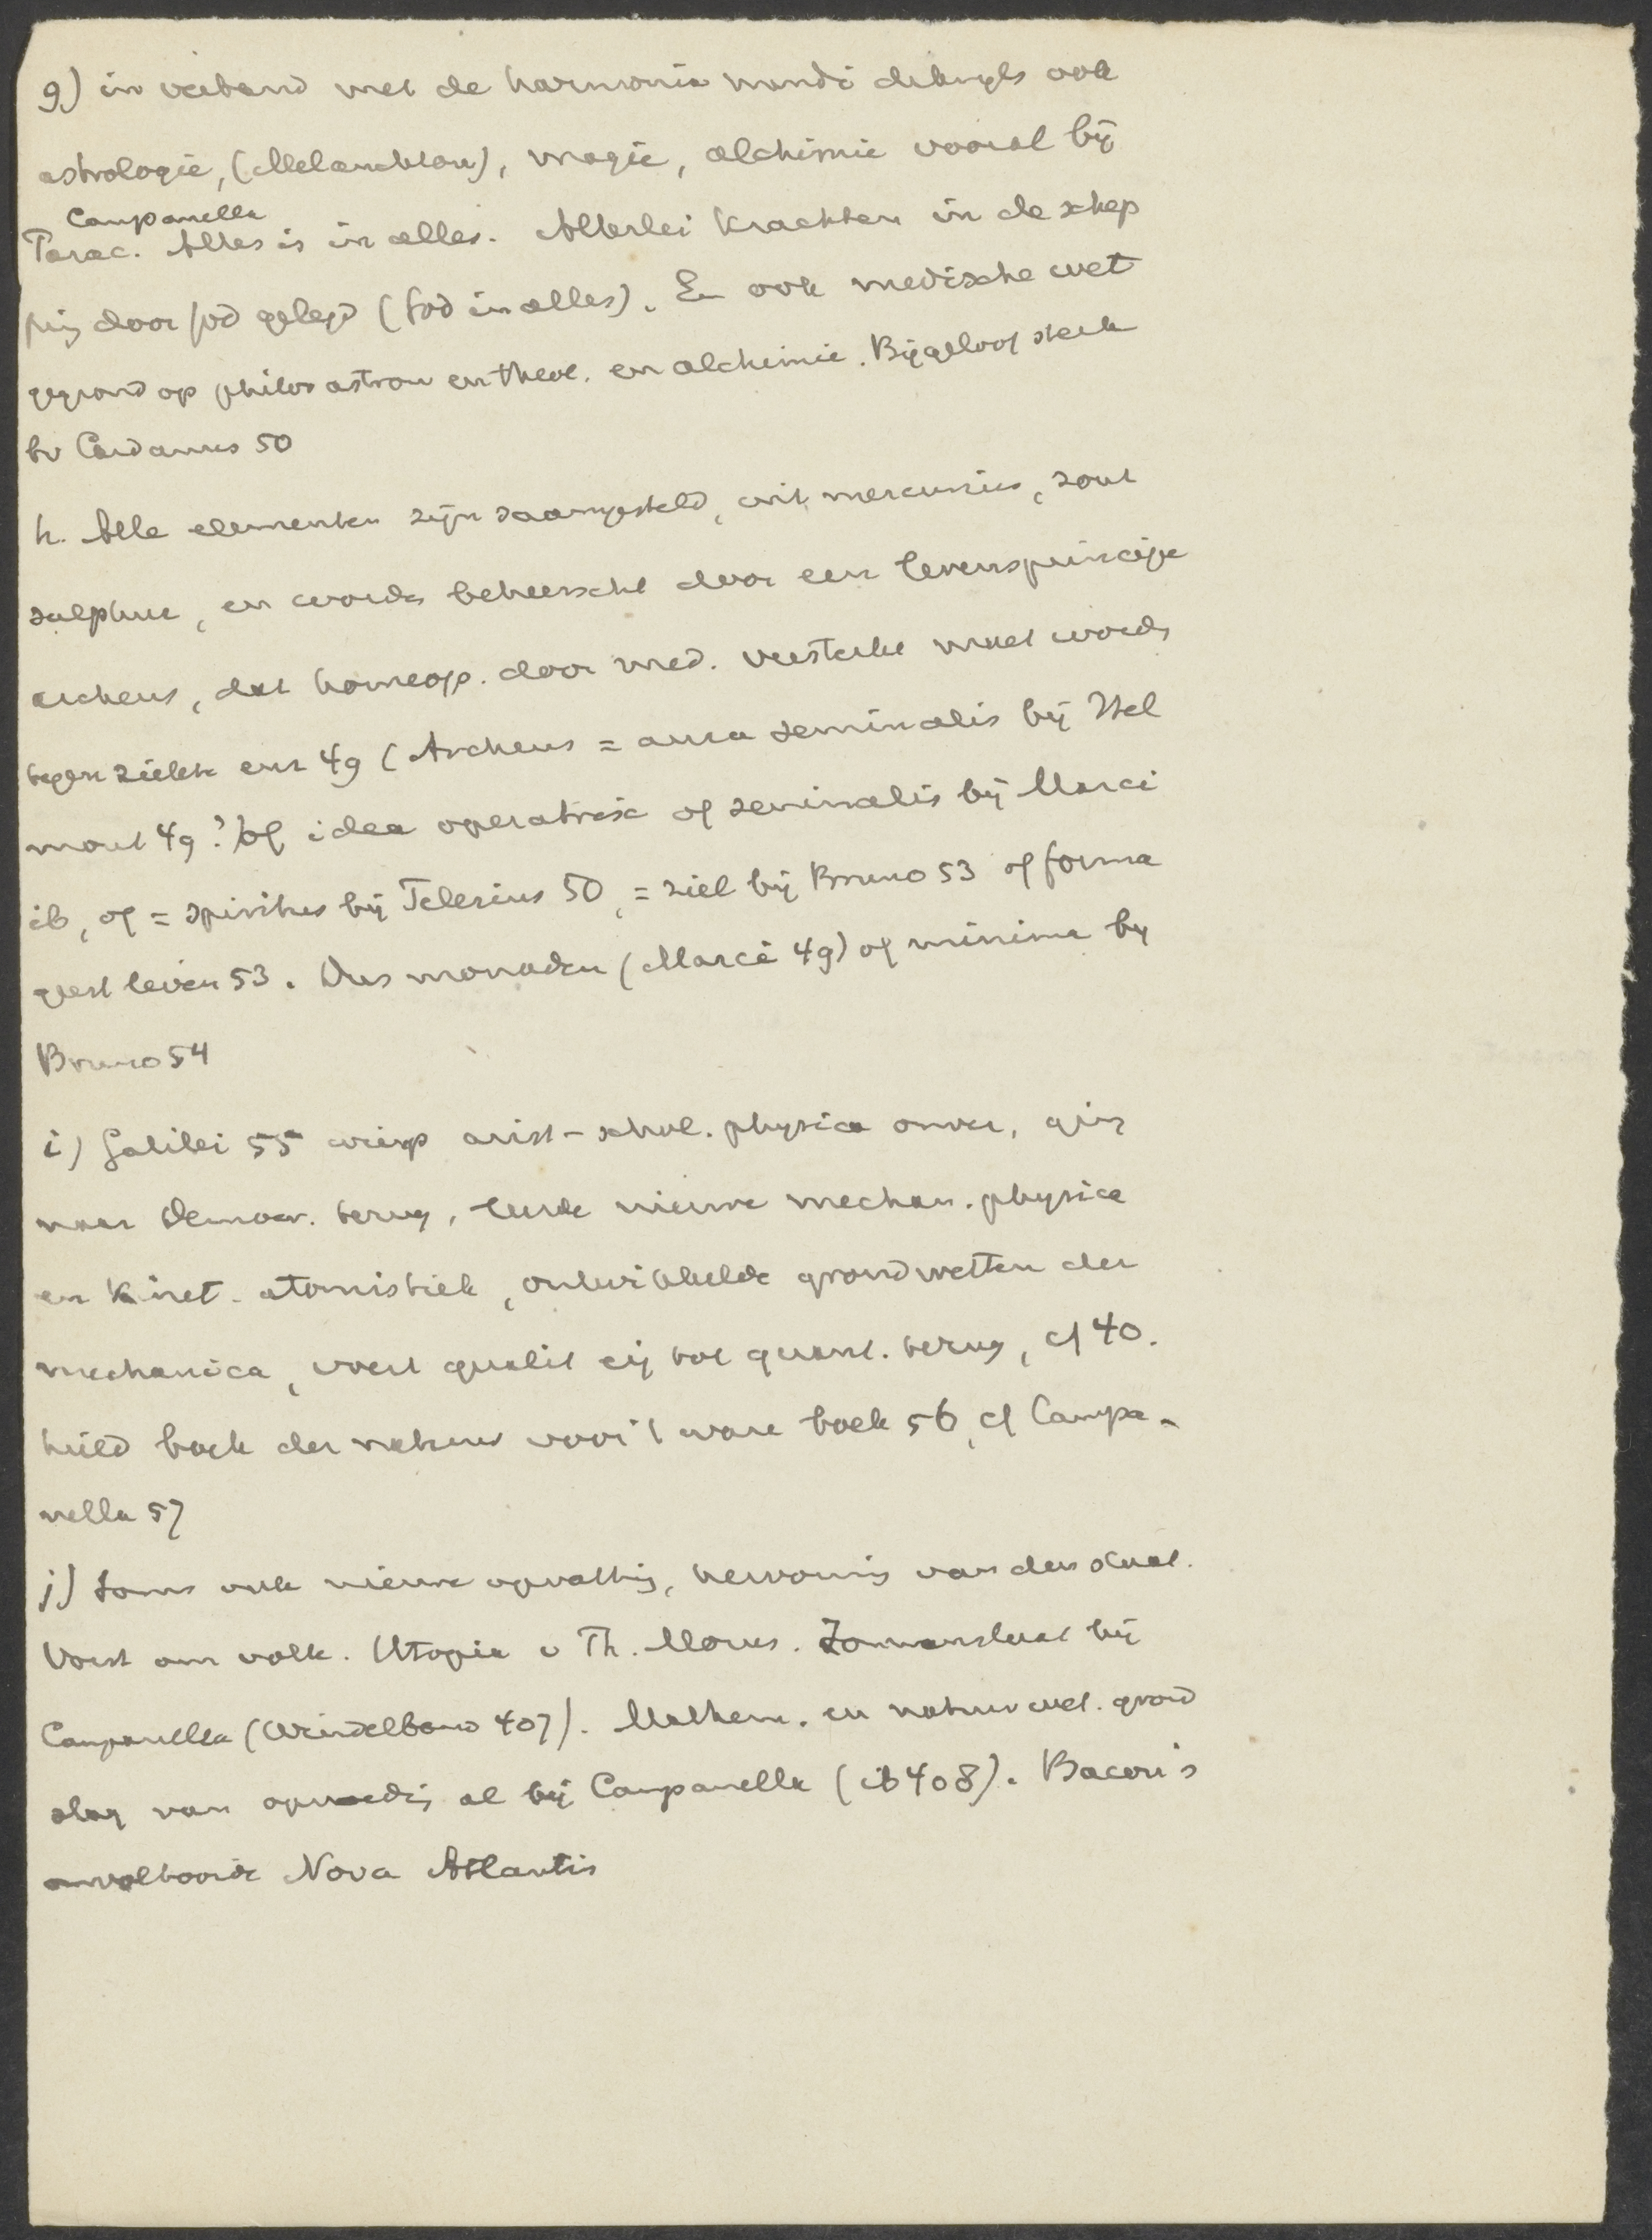 g) in verband met de harmonia mundi dikwijls ook
astrologie, (Melanchton), magie, alchimie vooral bij
Campanella
Parac. Alles is in alles. Allerlei krachten in de schep
ping door God gelegd (God in alles). En ook medische wet
gegrond op philos astron en theol. en alchimie. Bijgeloof sterk
bv Cardanus 50
h. Alle elementen zijn saamgesteld, uit mercurius, zout
sulphur, en words beheerscht door een levensprincipe
archeus, dat homeop. door med. versterkt moet words
tegen ziekte enz 49 (Archeus = aura seminalis bij Hel
mont 49?) of idea operatrix of seminalis bij Marci
ib, of = spiritus bij Telesius 50, = ziel bij Bruno 53 of forma
geest leven 53. Dus monaden (Marci 49) of minima by
Bruno 54
i) Galilei 55 wierp arist-schol. physica omver, ging
naar Democr. terug, leerde nieuwe mechan. physica
en kinet. atomistiek, ontwikkelde grondwetten der
mechanica, voert qualit eij tot quant. terug, cf 40.
hield boek der natuur voor 't ware boek 56, cf Campa-
nella 57
j) Soms ook nieuwe opvatting, hervorming van den staat.
Vorst om volk. Utopia v Th. Morus. Zonnenstaat bij
Campanella (Windelband 407). Mathem. en natuurwet. grond
slag van opvoeding al bij Campanella (ib 408). Bacon's
onvoltooide Nova Atlantis